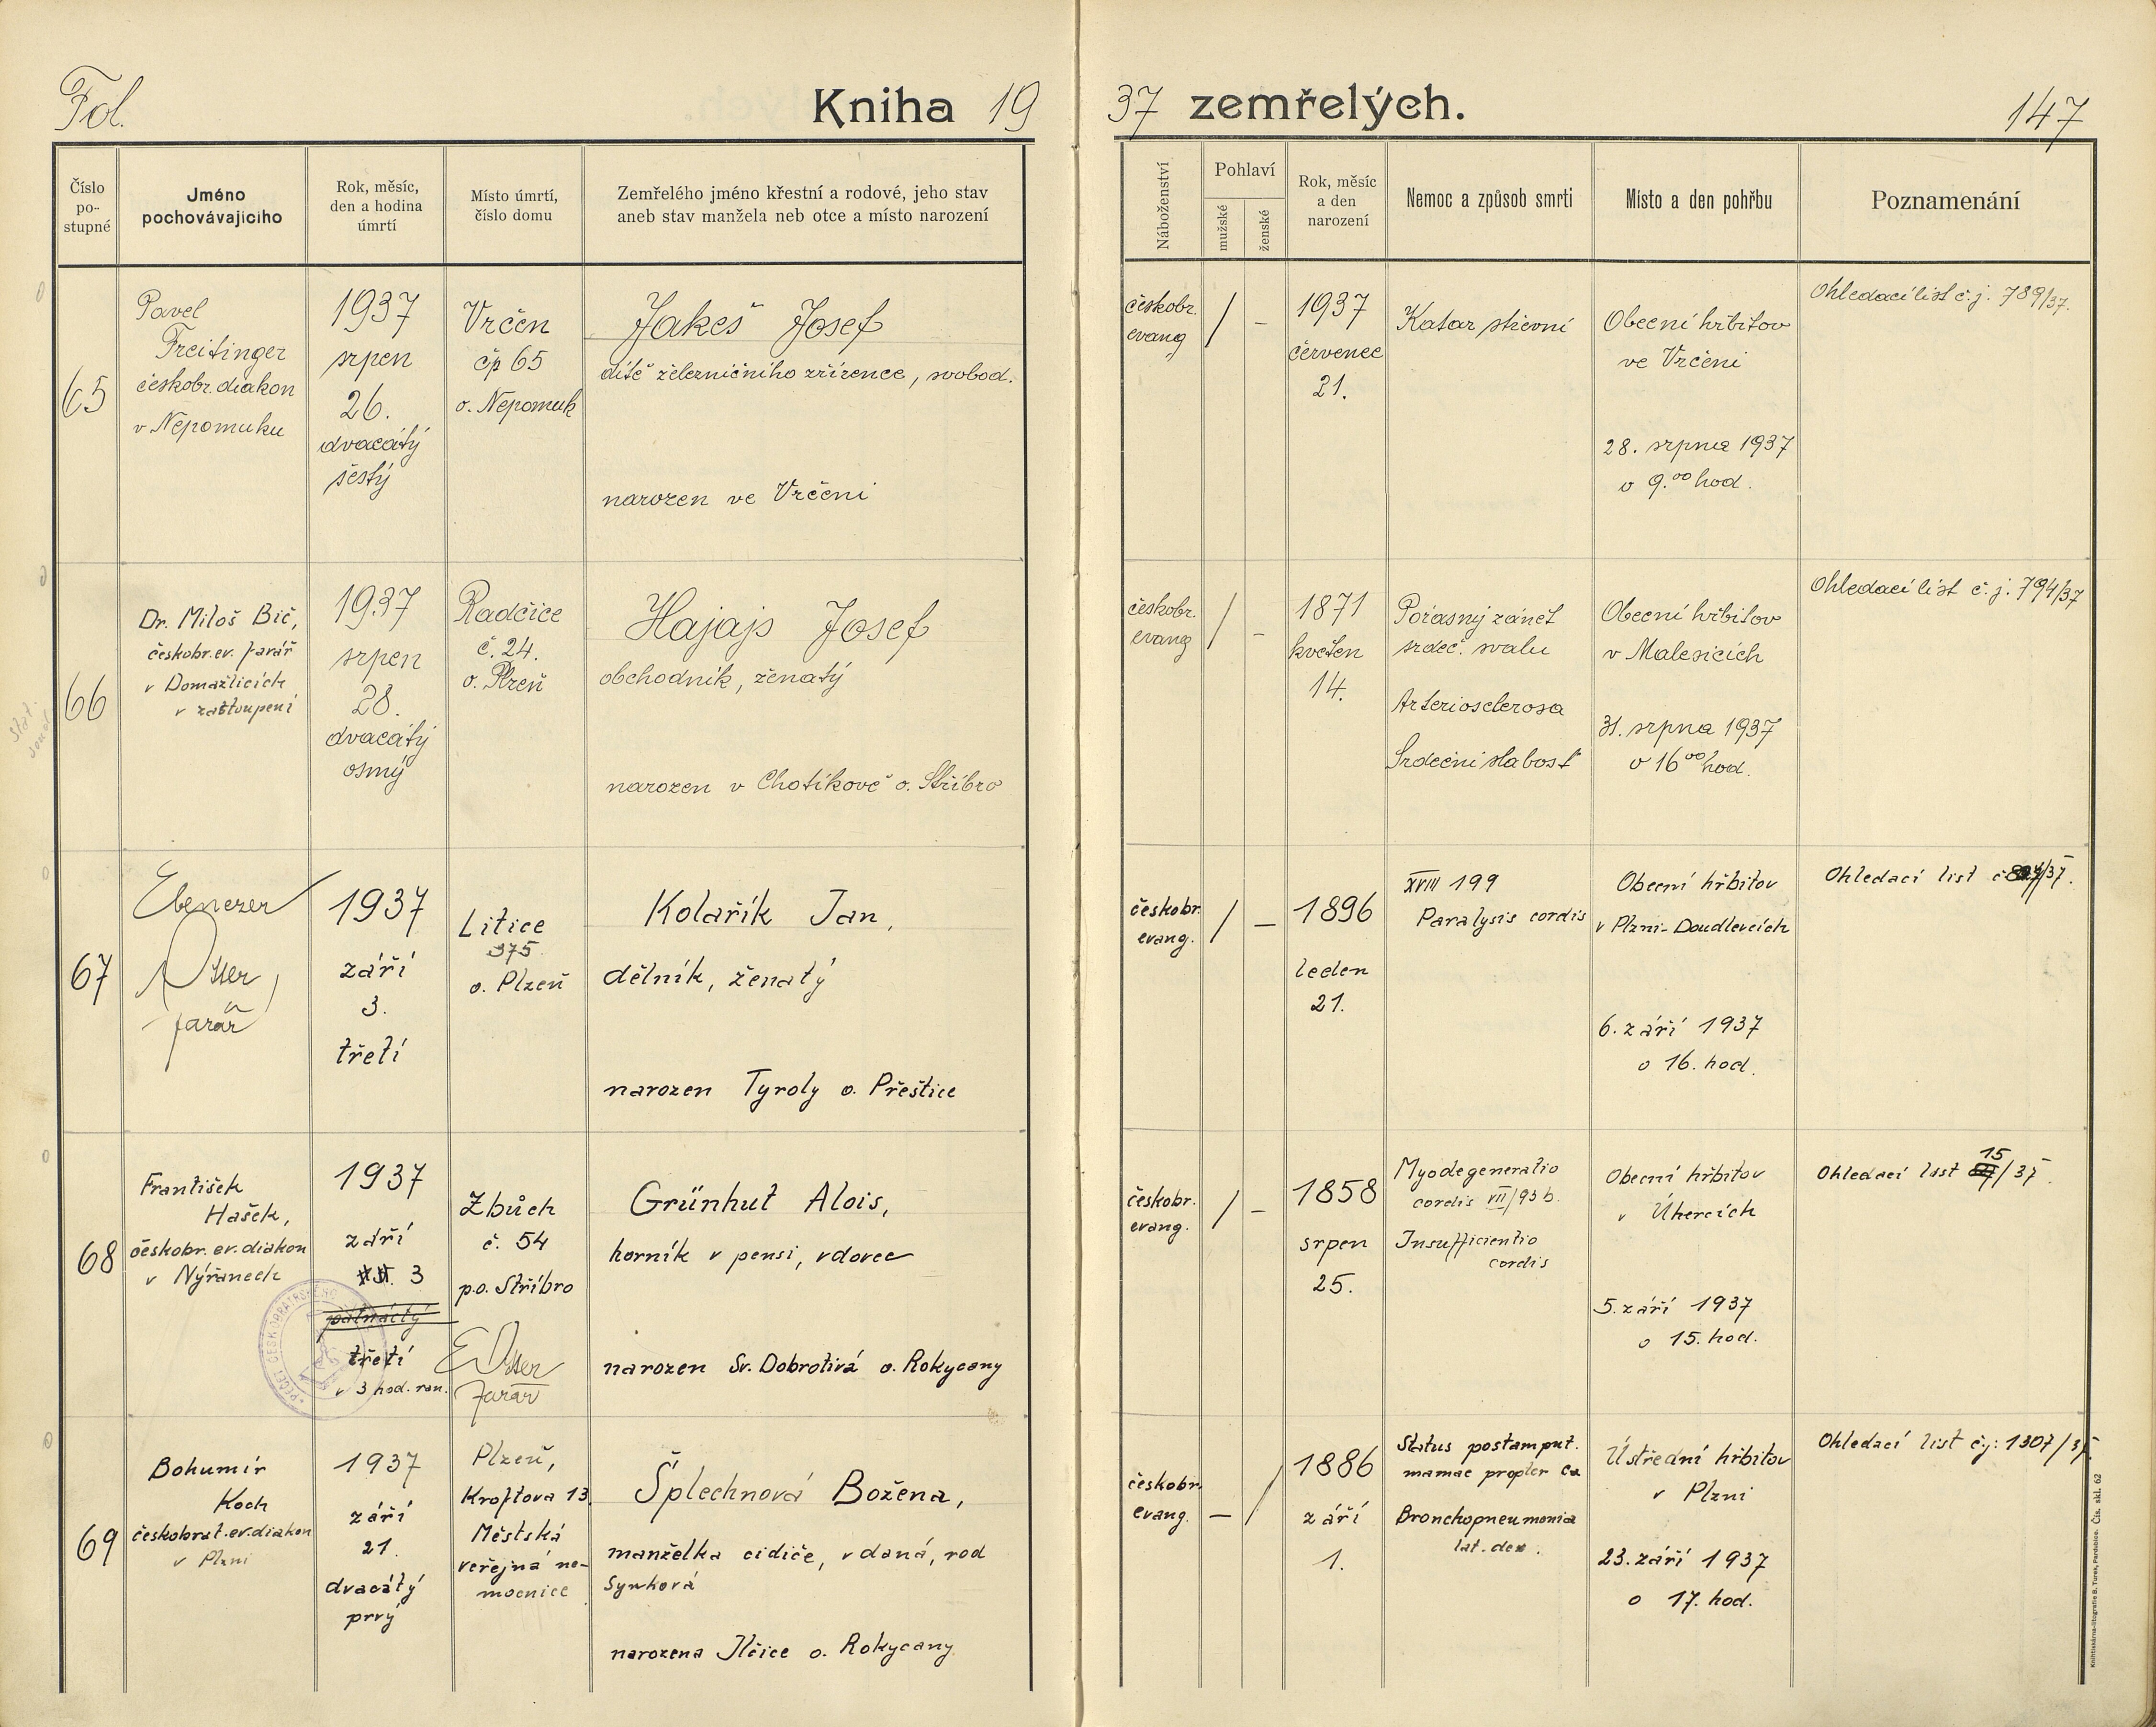 Fol.
Kniha 19
37 zemřelých.
147
Číslo
po-
stupné
Jméno
pochovávajícího
Rok, měsíc,
den a hodina
úmrtí
Místo úmrtí,
číslo domu
Zemřelého jméno křestní a rodové, jeho stav
aneb stav manžela neb otce a místo narození
Náboženství
Pohlaví
mužské
ženské
Rok, měsíc
a den
narození
Nemoc a způsob smrti
Místo a den pohřbu
Poznamenání
65
Pavel
Freitinger
českobr. diakon
v Nepomuku
1937
srpen
26.
dvacátý
šestý
Vrčen
čp 65
o. Nepomuk
Jakeš Josef
dítě železničního zřízence, svobod.
narozen ve Vrčeni
českobr.
evang
/
–
1937
červenec
21.
Katar střevní
Obecní hřbitov
ve Vrčeni
28. srpna 1937
v 9.00 hod.
Ohledací list č. j. 789/37.
66
Dr. Miloš Bič,
českobr. ev. farář
v Domažlicích
v zastoupení
1937
srpen
28.
dvacátý
osmý
Radčice
č. 24.
o. Plzeň
Hajajs Josef
obchodník, ženatý
narozen v Chotíkově o. Stříbro
českobr.
evang
/
–
1871
květen
14.
srdeč. svalu
Arteriosclerosa
Srdeční slabost
Obecní hřbitov
v Malesicích
31. srpna 1937
v 16 00 hod.
Ohledací list č. j. 794/37
67
Ebenezer
farář
1937
září
3.
třetí
Litice
375
o. Plzeň
Kolařík Jan,
dělník, ženatý
narozen Tyroly o. Přeštice
českobr.
evang.
/
–
1896
leden
21.
XVIII 199
Paralysis cordis
Obecní hřbitov
v Plzni-Doudlevcích
6. září 1937
o 16. hod.
Ohledací list č /37.
68
František
Hašek,
českobr. ev. diakon
v Nýřanech
1937
září
3
patnáctý
třetí
v 3 hod. ran.
Zbůch
č. 54
p.o. Stříbro
farář
Grünhut Alois,
horník v pensi, vdovec
narozen Sv. Dobrotivá o. Rokycany
českobr.
evang.
/
–
1858
srpen
25.
Myodegeneratio
cordis VII/93 b.
Insufficientio
cordis
Obecní hřbitov
v Úhercích
5. září 1937
o 15. hod.
Ohledací list 15/37.
69
Bohumír
Koch
českobrat. ev. diakon
v Plzni
1937
září
21.
dvacátý
prvý
Plzeň,
Kroftova 13.
Městská
veřejná ne-
mocnice
Šplechnová Božena,
manželka cidiče, vdaná, rod
Synková
narozena Ilčice o. Rokycany
českobr.
evang.
–
/
1886
září
1.
Status postamput.
mamae propter ca
Bronchopneumonia
lat. dex.
Ústřední hřbitov
v Plzni
23. září 1937
o 17. hod.
Ohledací list č.j: 1307/37.
Knihtiskárna-litografie B. Turek, Pardubice. Čís. skl. 62